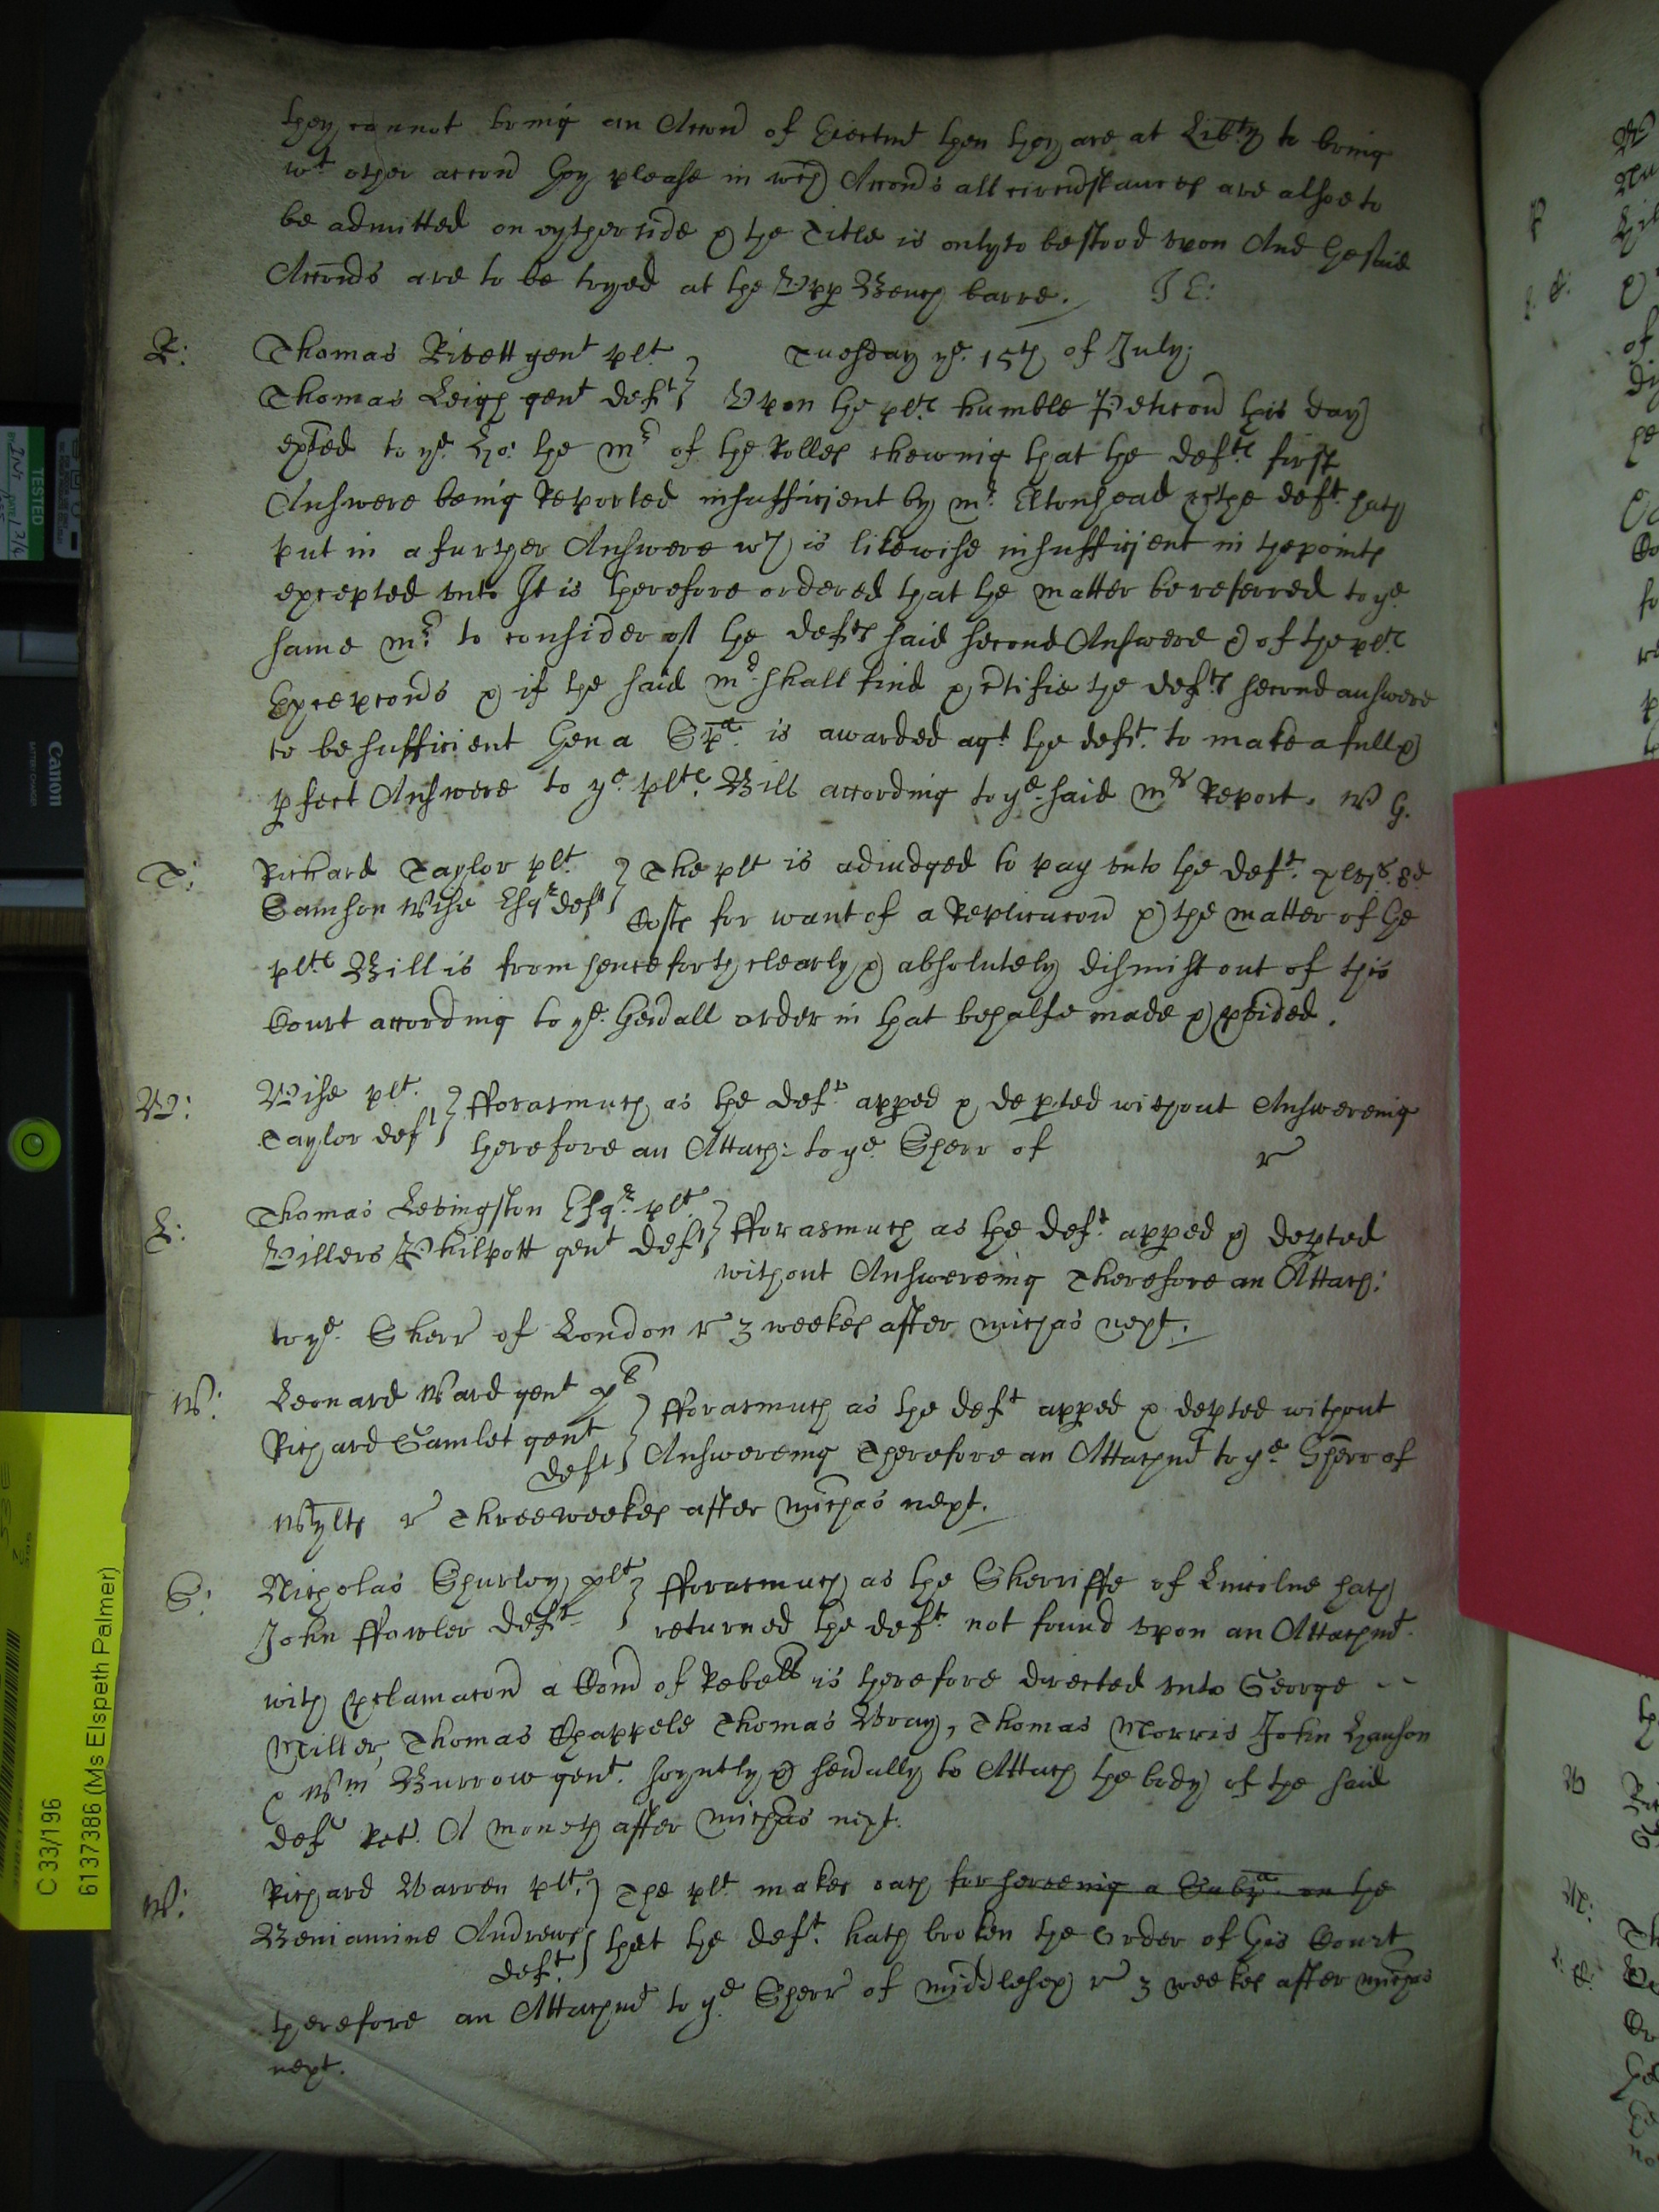 they cannot bring an Accon of Eiectmt then they are at Libty to bring
wt other accon they please in wch Accons all circumstances are alsoe to
be admitted on eyther side & the Title is only to be stood upon And the said
Accons are to be tryed at the Upp Bench barre. J E:
R: Thomas Rivett gent plt Tuesday ye 15th of July:
Thomas Leigh gent deft Upon the plts humble Peticon this day
exhted to ye Ho: the mr of the Rolles shewing that the defts first
Answere being Reported insufficient by mr Eltonhead the deft hath
put in a further Answere wch is likewise insufficient in the points
excepted unto It is therefore ordered that the matter be referred to ye
same mr to consider of the defts said second Answere & of the plts
Excepcons & if the said mr shall find & certifie the defts second answere
to be sufficient then a Spa is awarded agt the deft to make a full &
pfect Answere to ye plts Bill according to ye said mrs Report. W G.
T: Richard Taylor plt The plt is adiudged to pay unto the deft
Samson Wise Esqr deft Costs for want of a Replicacon & the matter of the
plts Bill is from henceforth clearly & absolutely dismist out of this
Court according to ye Genall order in that behalfe made & pvided.
W: Wise plt fforasmuch as the deft apped & depted without Answereing
Taylor deft therefore an Attach: to ye Sherr of r
L: Thomas Levingston Esqr plt
Villers Philpott gent deft fforasmuch as the deft apped & depted
without Answereing Therefore an Attach:
to ye Sherr of London r 3 weekes after michas next.
W: Leonard Ward gent plt fforasmuch as the deft apped & depted without
Richard Gamlet gent
deft Answereing Therefore an Attachmt to ye Sherr of
Wylts r Three weekes after michas next.
S: Nicholas Shurley plt fforasmuch as the Sherriffe of Lincolne hath
John ffowler deft returned the deft not found upon an Attachmt
with pclamacon a Com of Rebell is therefore directed unto George
Miller, Thomas Chappele Thomas Wray, Thomas Morris John Hanson
& Wm Burrow gent. Joyntly & sevally to Attach the body of the said
deft Ret. A moneth after michas next.
W: Richard Warren plt The plt makes oath for serveing a Subpa on the
Beniamine Andrewes that the deft hath broken the order of this Court
deft
therefore an Attachmt to ye Sherr of middlesex r 3 weekes after michas
next.
TESTED
Canon
BATTERY CHARGER
C 33/196
6137386 (Ms Elspeth Palmer)